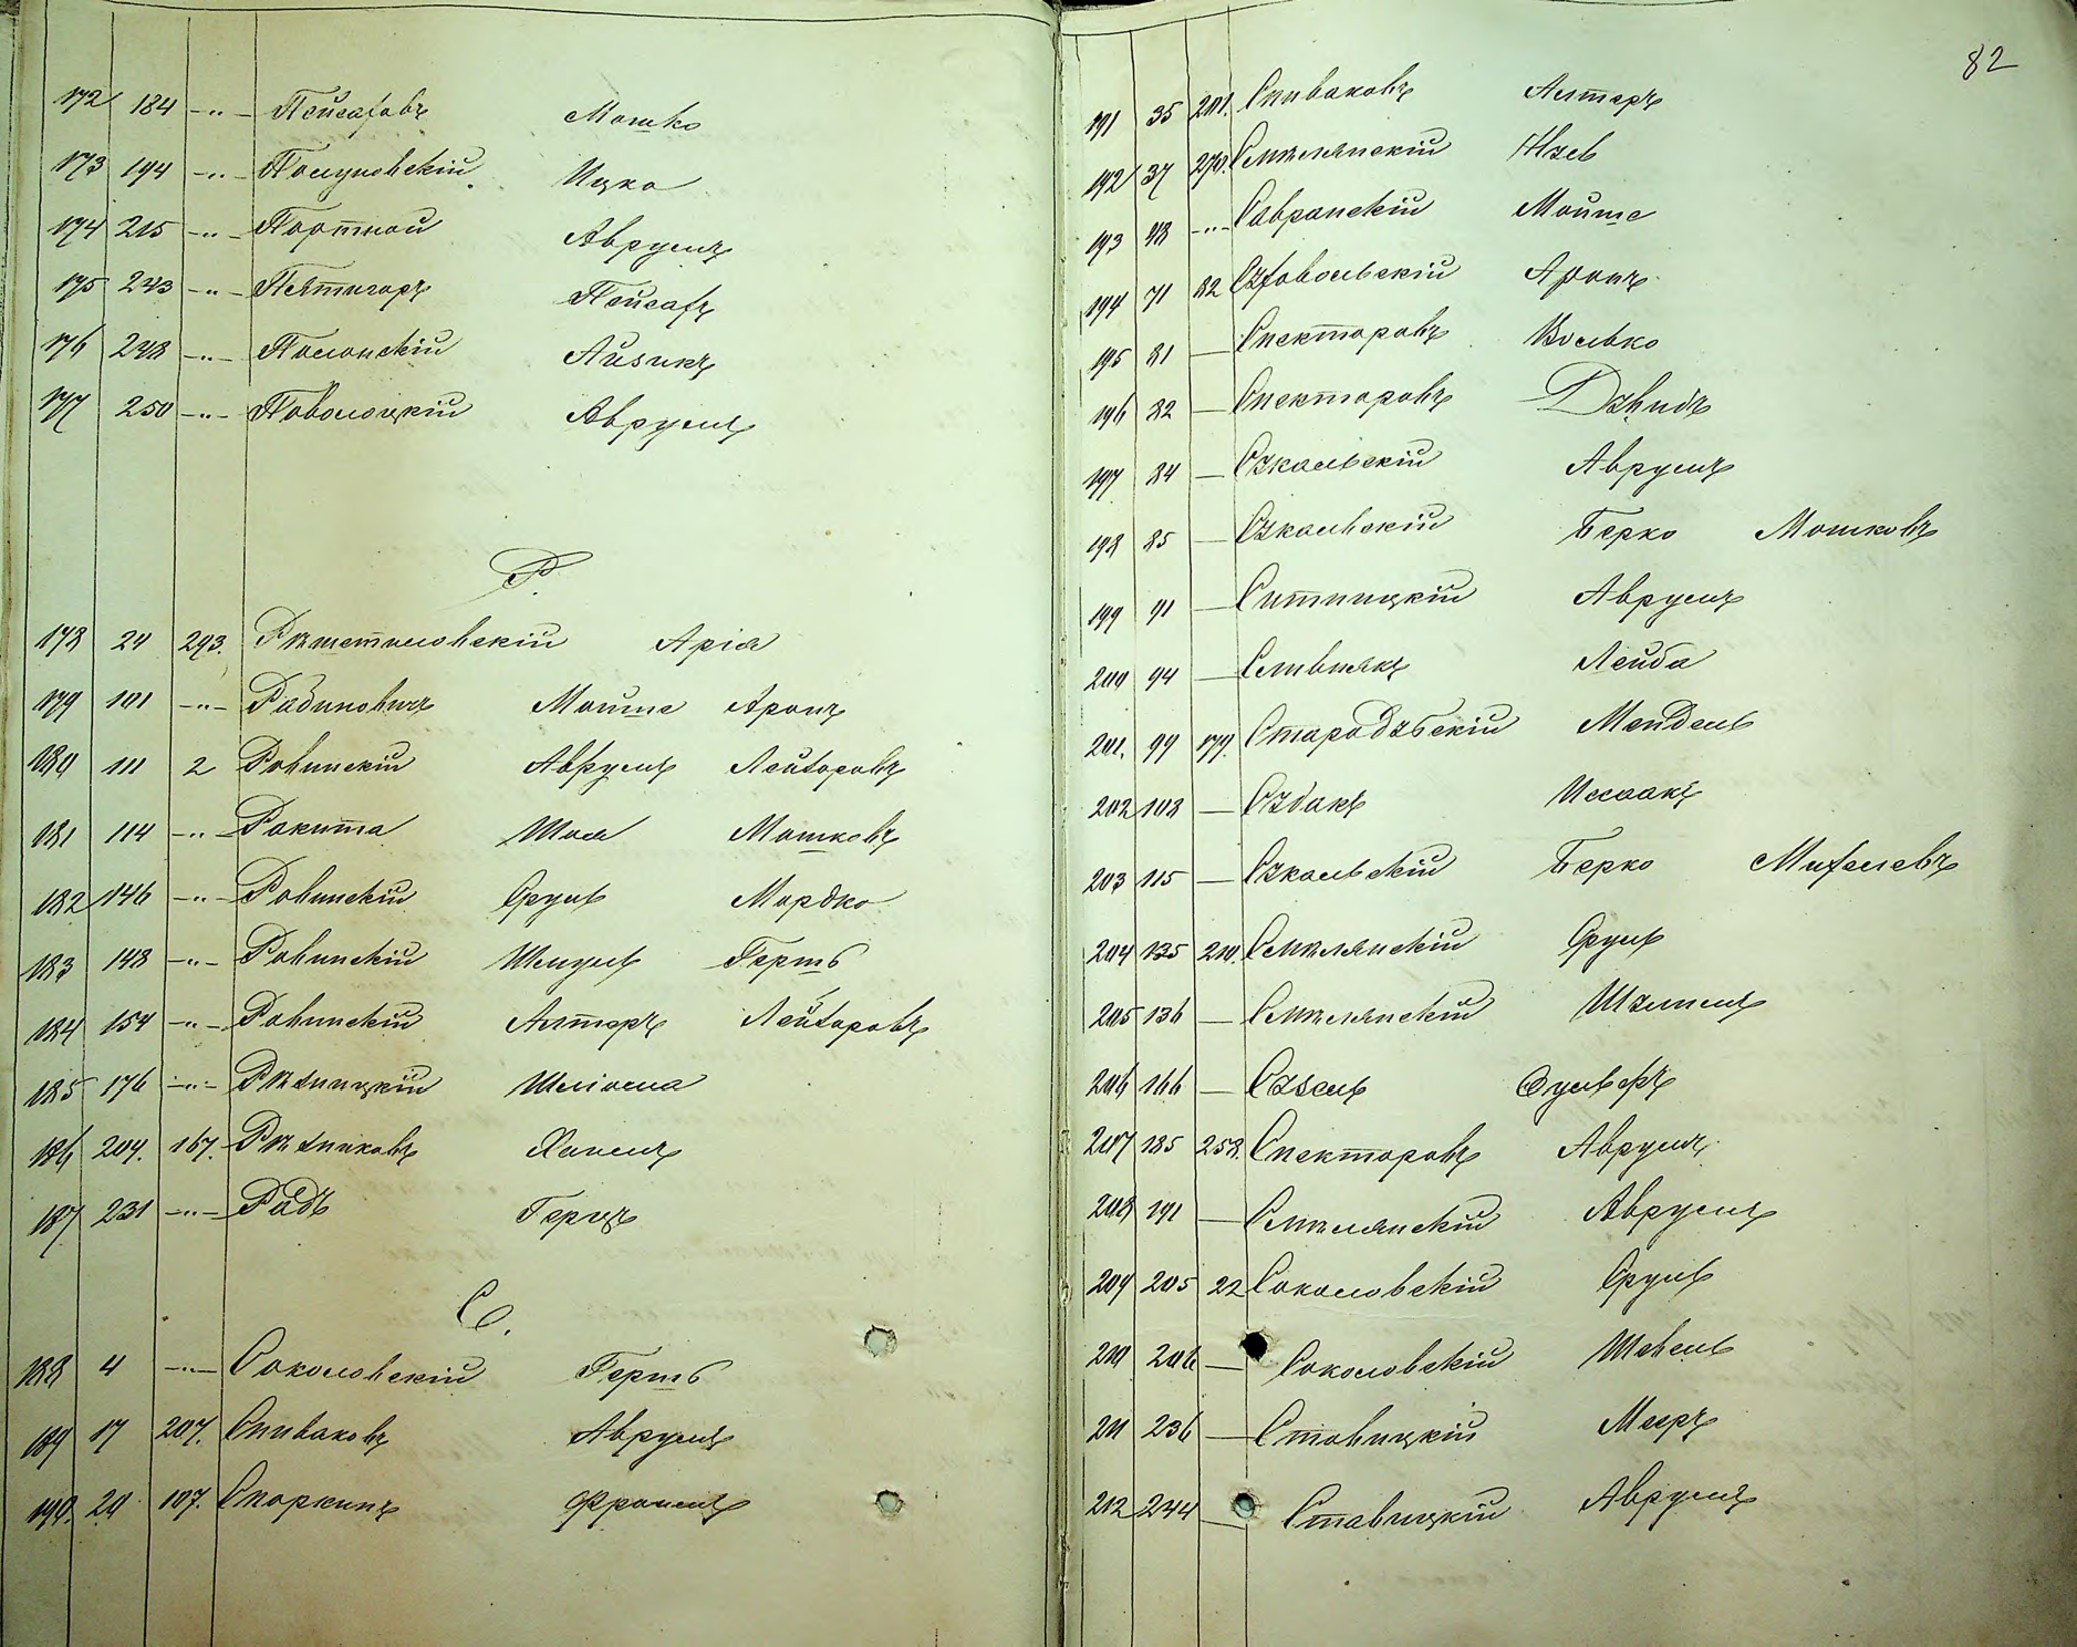 172 184 -"- Пейсаховъ Мошко
173 194 -"- Полуновскій Ицко
174 215 -"- Портной Аврумъ
175 243 -"- Пятигоръ Пейсахъ
176 248 -"- Полонскій Айзикъ
177 250 -"- Поволоцкій Аврумъ
Р.
178 24 293. Рѣшетиловскій Арія
179 101 -"- Рабиновичъ Мойше Аронъ
180 111 2 Ровинскій Аврумъ Лейзоровъ
181 114 -"- Ракита Шая Мошковъ
182 146 -"- Ровинскій Сруль Мордко
183 148 -"- Ровинскій Шмуль Гершь
184 154 -"- Ровинскій Алтеръ Лейзоровъ
185 176 -"- Рѣзницкій Шліома
186 204. 167. Рѣзниковъ Хаимъ
187 231 -"- Радъ Герцъ
С.
188 4 -"- Соколовскій Гершь
189 17 207. Спиваковъ Аврумъ
190. 20 107. Споркинъ Фроимъ
82
191 35 201. Спиваковъ Алтеръ
192 37 270. Смѣлянскій
193 48 -"- Савранскій Мойше
194 71 82 Суховольскій Аронъ
195 81 — Спекторовъ Волько
196 82 — Спекторовъ Давидъ
197 84 — Сукальскій Аврумъ
198 85 — Сукальскій Берко Мошковъ
199 91 — Ситницкій Аврумъ
200 94 — Сливнякъ Лейба
201. 99 179. Стародубскій Мендель
202 108 — Судакъ Иссаакъ
203 115 — Сукальскій Берко Михелевъ
204 135 210. Смѣлянскій Сруль
205 136 — Смѣлянскій Шулимъ
206 166 — Сузель
207 185 258. Спекторовъ Аврумъ
208 191 — Смѣлянскій Аврумъ
209 205 22 Соколовскій Сруль
210 206 — Соколовскій Шевель
211 236 — Ставицкій Мееръ
212 244 — Ставицкій Аврумъ